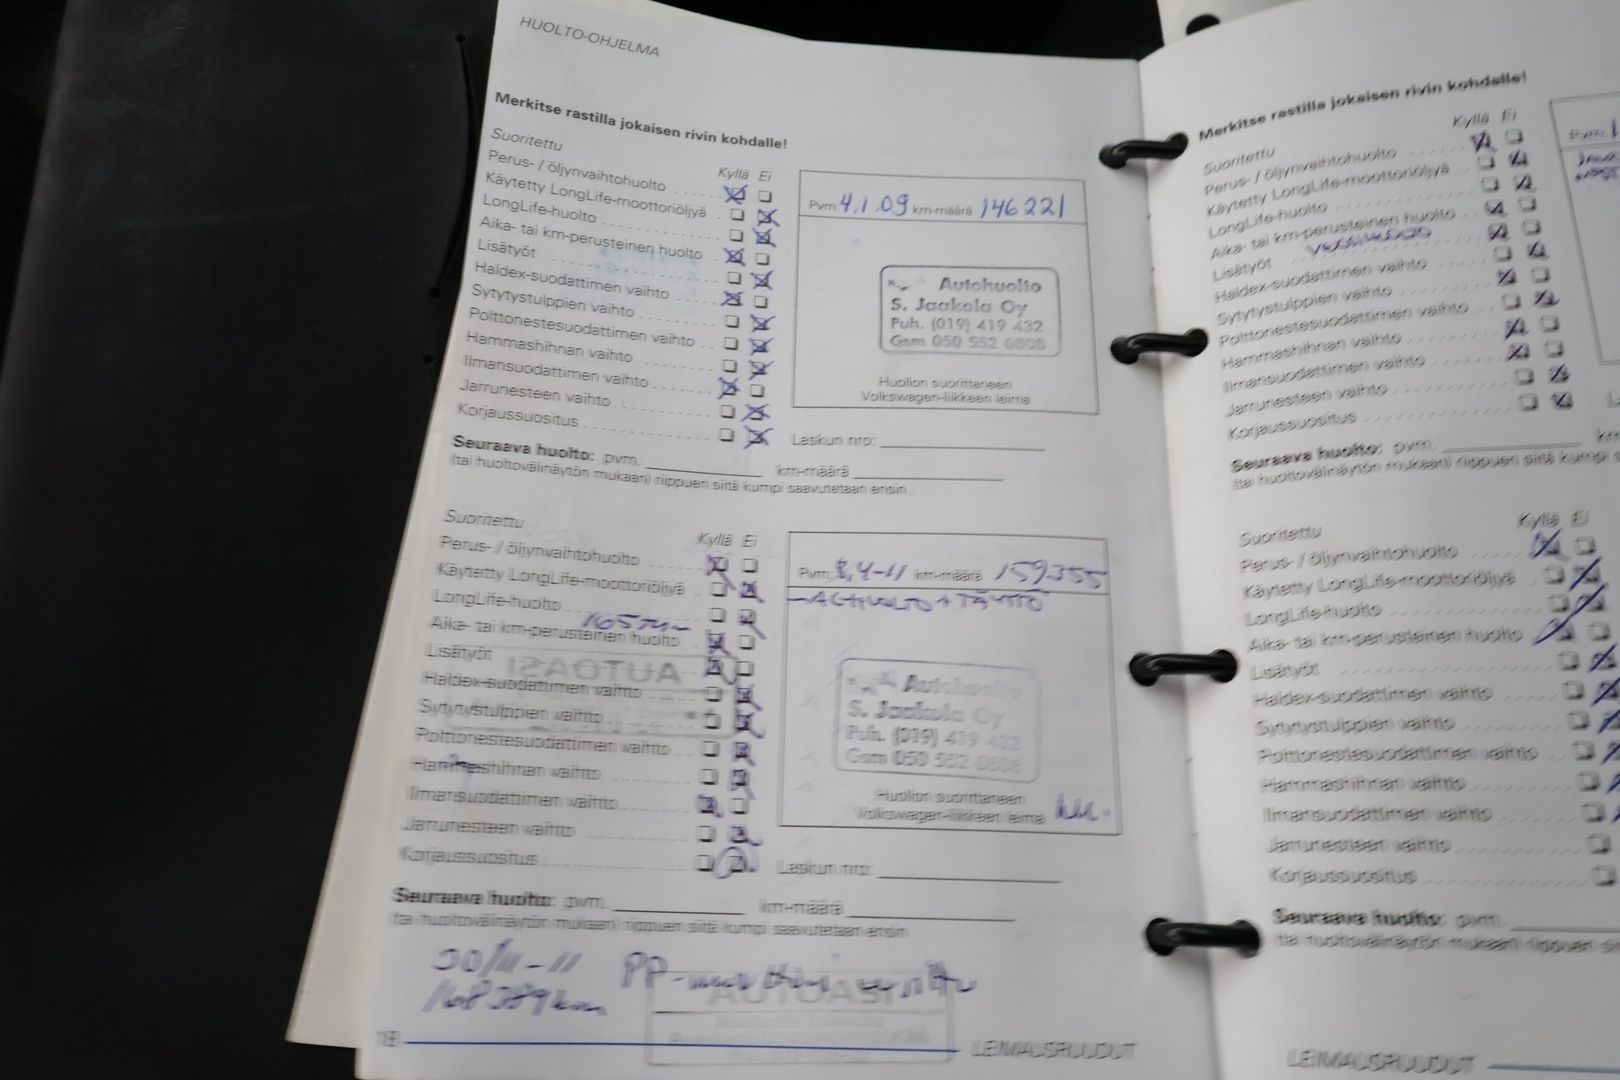 HUOLTO-OHJELMA
Merkitse rastilla jokaisen rivin kohdalle!
Suoritettu
Kyllä Ei
Perus- / öljynvaihtohuolto
Käytetty LongLife-moottoriöljyä
LongLife-huolto
Aika- tai km-perusteinen huolto
Lisätyöt
Haldex-suodattimen vaihto
Sytytystulppien vaihto
Polttonestesuodattimen vaihto
Hammashihnan vaihto
Ilmansuodattimen vaihto
Jarrunesteen vaihto
Korjaussuositus
Pvm: 4.1.09 km-määrä 146221
Autohuolto
S. Jaakola Oy
Puh. (019) 419 432
Gsm 050 552 0808
Huollon suorittaneen
Volkswagen-liikkeen leima
Laskun nro:
Seuraava huolto: pvm. km-määrä
(tai huoltovälinäytön mukaan) riippuen siitä kumpi saavutetaan ensin
Suoritettu
Kyllä Ei
Perus- / öljynvaihtohuolto
Käytetty LongLife-moottoriöljyä
LongLife-huolto
Aika- tai km-perusteinen huolto
Lisätyöt
Haldex-suodattimen vaihto
Sytytystulppien vaihto
Polttonestesuodattimen vaihto
Hammashihnan vaihto
Ilmansuodattimen vaihto
Jarrunesteen vaihto
Korjaussuositus
Pvm: 8,4-11 km-määrä 159355
Autohuolto
S. Jaakola Oy
Puh. (019) 419 432
Gsm 050 552 0808
Huollon suorittaneen
Volkswagen-liikkeen leima
Laskun nro:
Seuraava huolto: pvm. km-määrä
(tai huoltovälinäytön mukaan) riippuen siitä kumpi saavutetaan ensin
168389km
LEIMAUSRUUDUT
Merkitse rastilla jokaisen rivin kohdalle!
Suoritettu
Kyllä Ei
Perus- / öljynvaihtohuolto
Käytetty LongLife-moottoriöljyä
LongLife-huolto
Aika- tai km-perusteinen huolto
Lisätyöt
Haldex-suodattimen vaihto
Sytytystulppien vaihto
Polttonestesuodattimen vaihto
Hammashihnan vaihto
Ilmansuodattimen vaihto
Jarrunesteen vaihto
Korjaussuositus
Pvm:
Seuraava huolto: pvm.
(tai huoltovälinäytön mukaan) riippuen siitä kumpi
Suoritettu
Kyllä Ei
Perus- / öljynvaihtohuolto
Käytetty LongLife-moottoriöljyä
LongLife-huolto
Aika- tai km-perusteinen huolto
Lisätyöt
Haldex-suodattimen vaihto
Sytytystulppien vaihto
Polttonestesuodattimen vaihto
Hammashihnan vaihto
Ilmansuodattimen vaihto
Jarrunesteen vaihto
Korjaussuositus
Seuraava huolto: pvm.
(tai huoltovälinäytön mukaan) riippuen
LEIMAUSRUUDUT